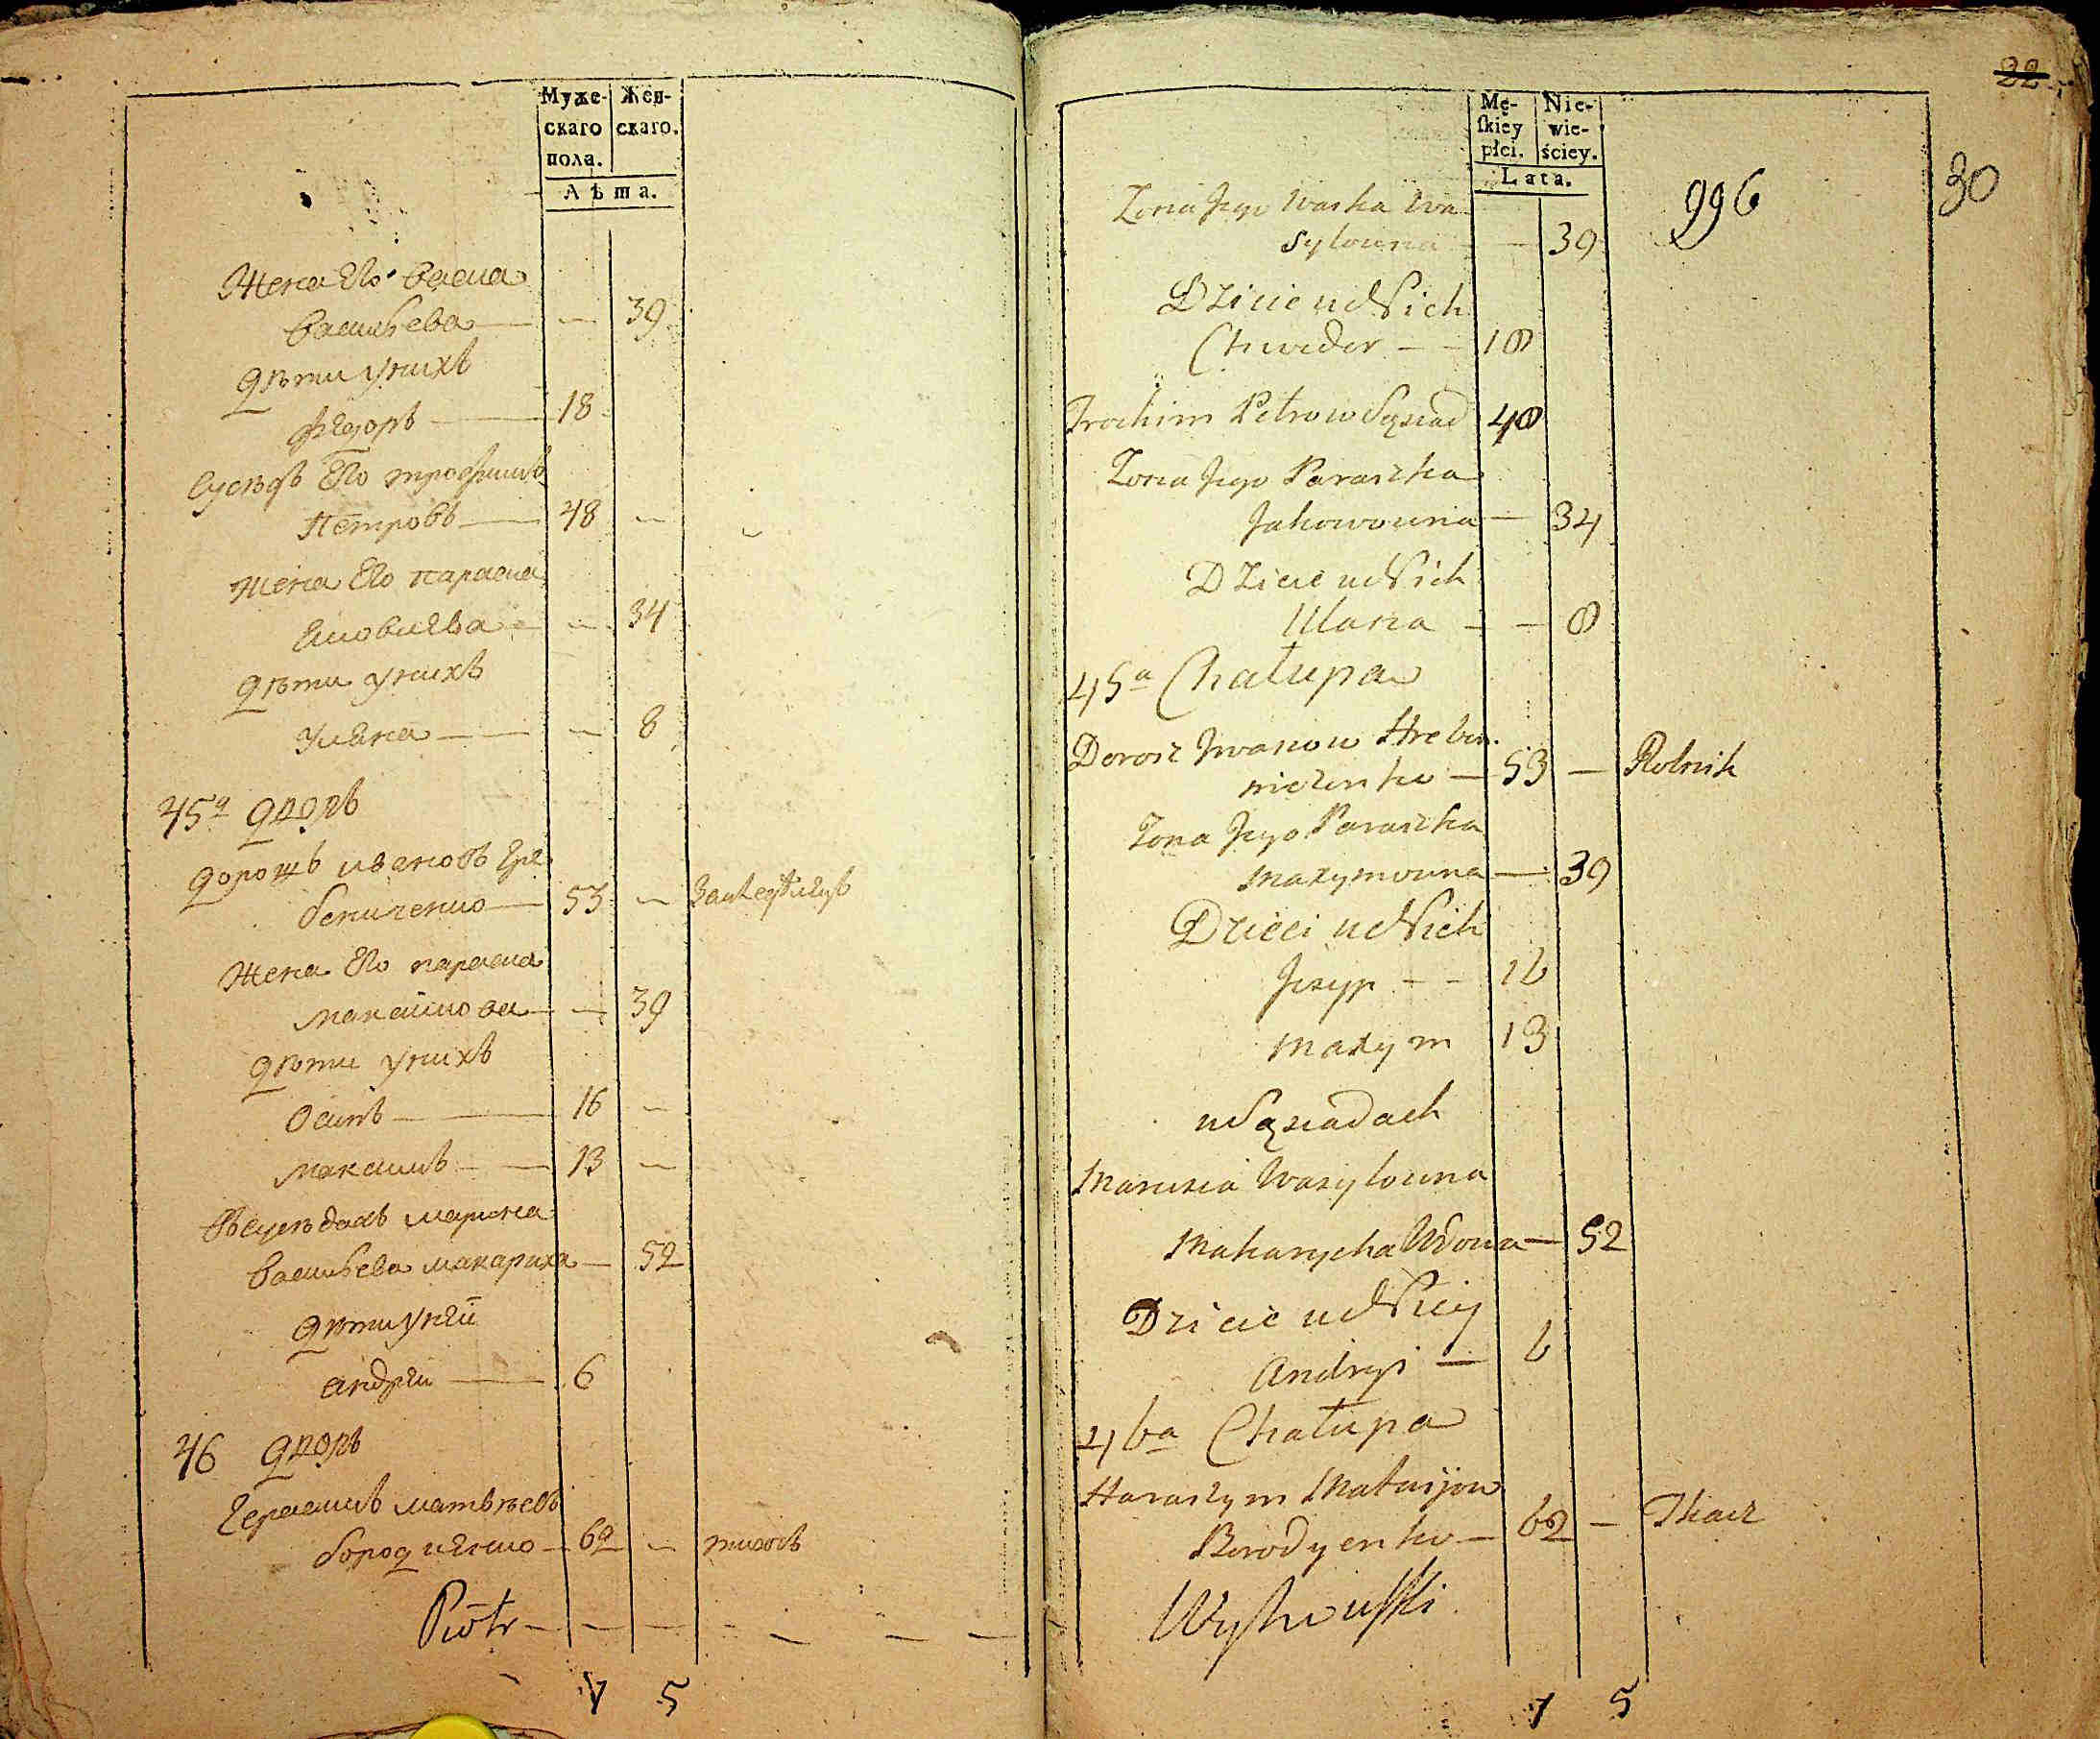 Муже-
скаго
пола.
Жен-
скаго.
Лѣта.
Жена Его Васка
Васильева — — 39
Дѣти у нихъ
Ѳедоръ — 18
Сусѣдъ Его трофимъ
Петровъ — 48 —
Жена Его параска
Яковлева — — 34
Дѣти у нихъ
Уляна — — 8
45й дворъ
Дорошъ ивановъ Гре
бениченко — 53 —
Жена Его параска
Максимова — — 39
Дѣти у нихъ
Осипъ — 16 —
Максимъ — 13 —
Въ сусѣдахъ марина
Васильева макариха — 52
Дѣти у неи
андреи — 6
46 дворъ
Герасимъ матвѣевъ
бородиенко — 62 — ткачь
Piotr — — — — — — —
7 5
22
Mę-
ſkiey
płci.
Nie-
wie-
ściey.
Lata.
996
30
Zona Jego Waska Wa
sylowna — — 39
Dziecie u Nich
Chwedor — — 18
Trochim Petrow Sąsiad 48
Zona Jego Paraszka
Jakowowna — 34
Dziecie u Nich
Ulana — — 8
45a Chałupa
Dorosz Jwanow Hrebe-
niczenko — 53 — Rolnik
Zona Jego Paraszka
Maxymowna — 39
Dzieci u Nich
Jesyp — — 16
Maxym 13
w Sąsiadach
Marusia Wasylowna
Makarycha Wdowa — 52
Dziecie u Niey
Andryi — 6
46a Chałupa
Haraszym Matwijow
Borodyenko — 62 — Tkacz
Wyhowſki
7 5